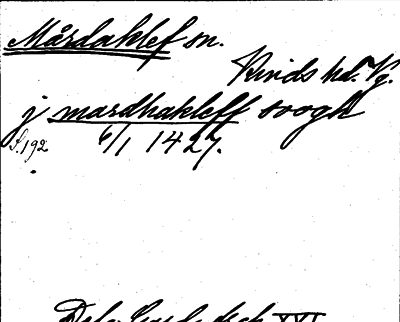 Mårdaklef sn.
Kinds hd. Vg.
j mardhakleff soogh
S. 192 6/1 1427.
XVI